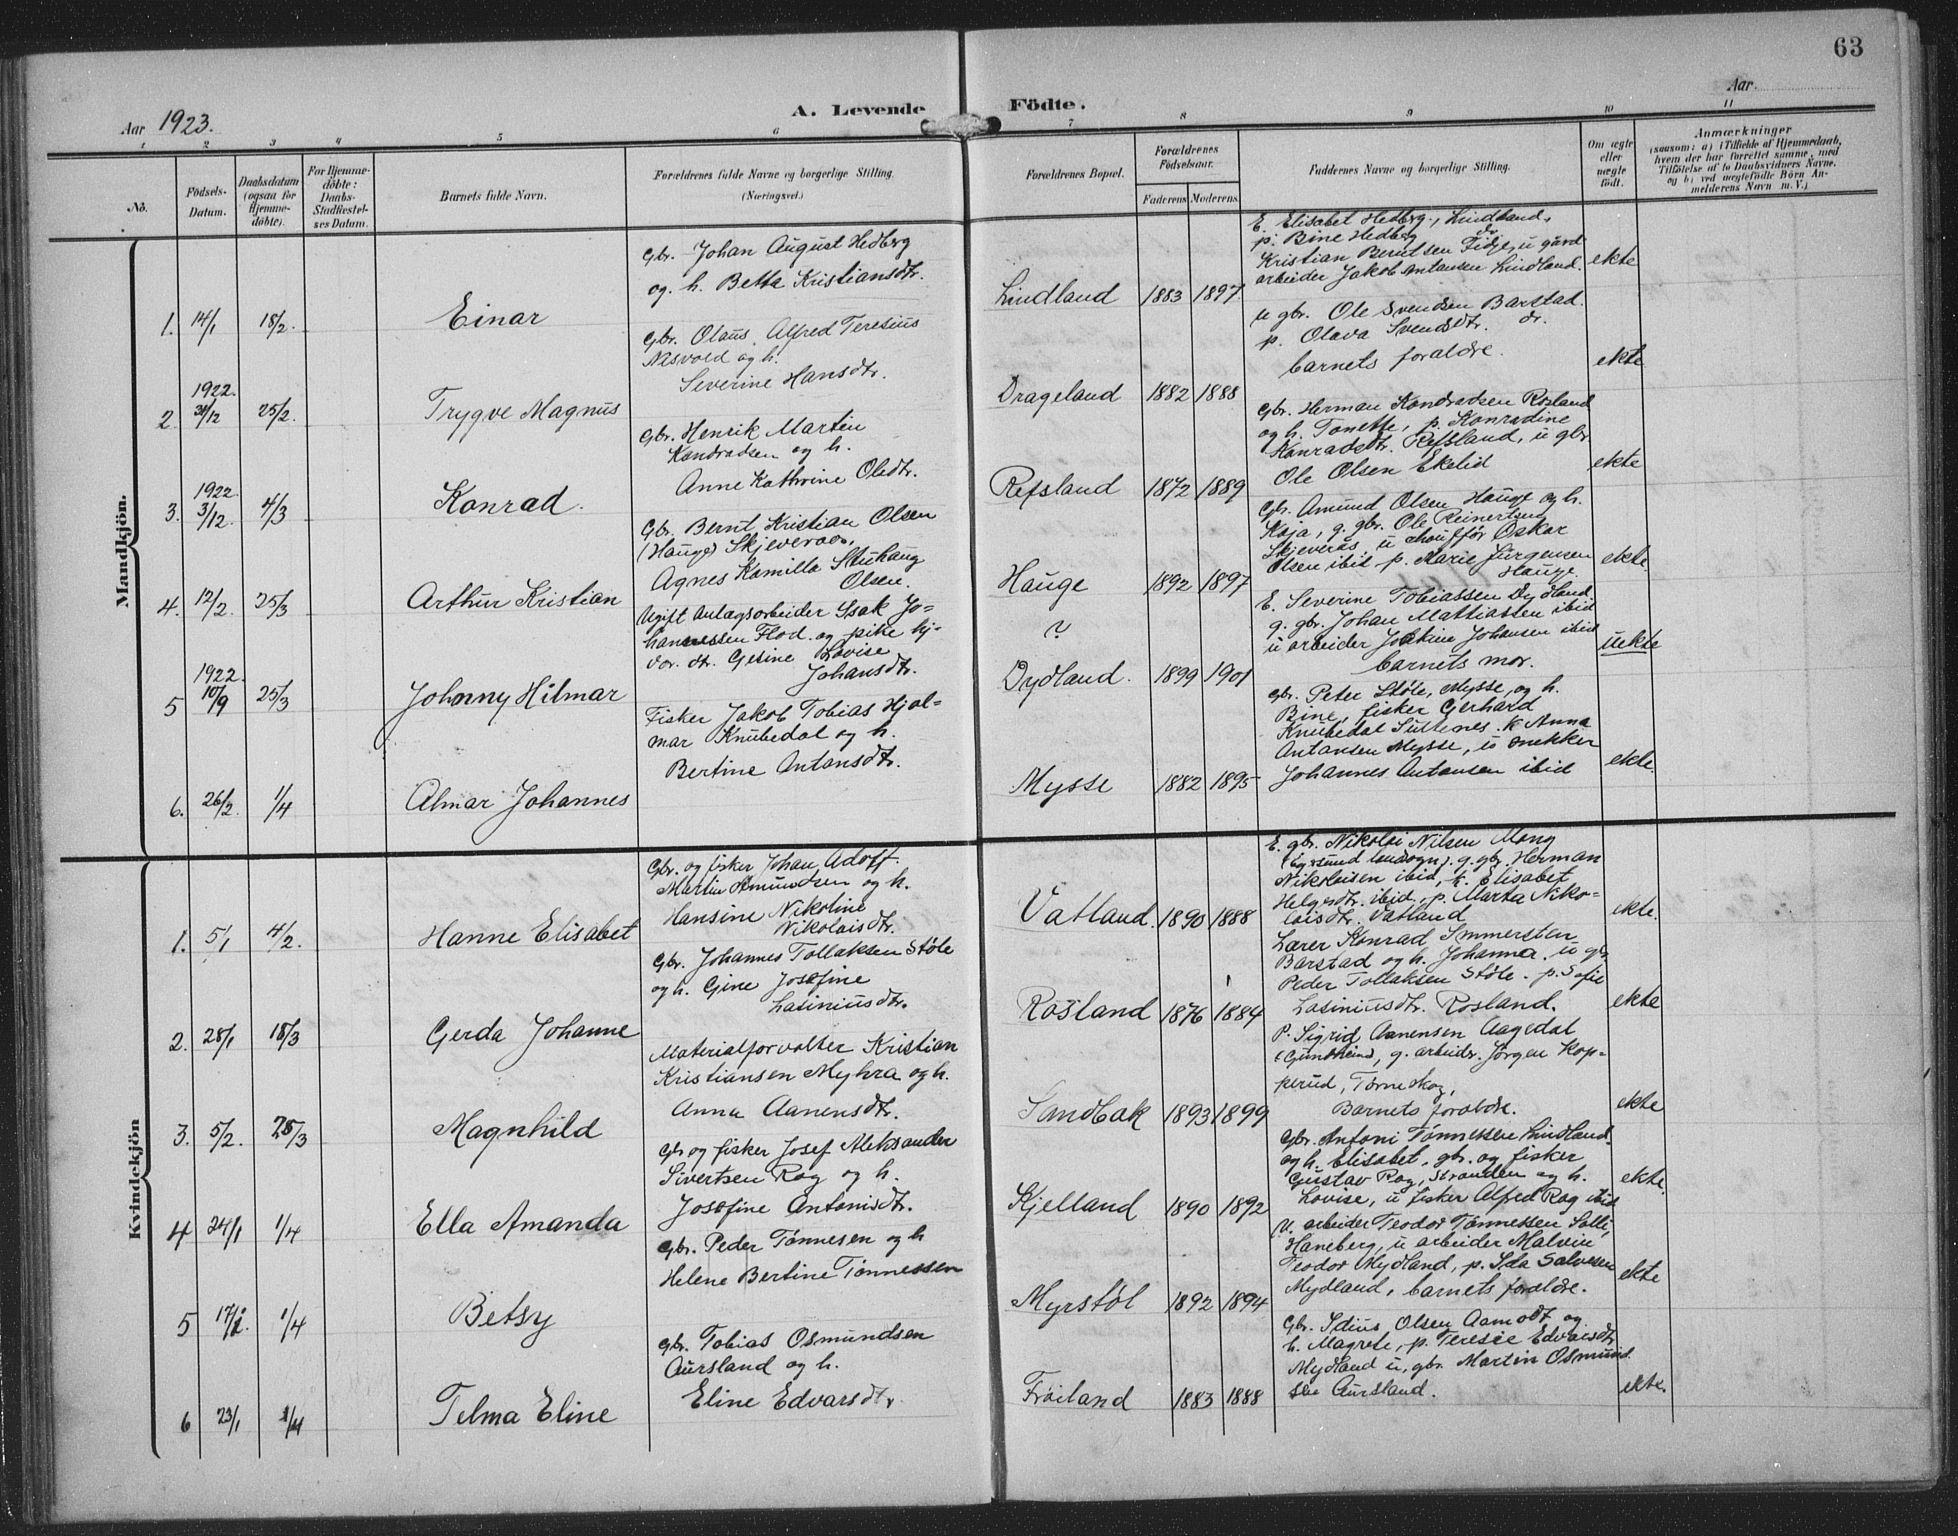 63
Aar 1923.
A. Levende Födte.
Aar
1 2 3 4 5 6 7 8 9 10 11
No.
Födsels-Datum.
Daabsdatum (ogsaa for Hjemme-döbte).
For Hjemme-döbte: Daabs-Stadfæstel-ses Datum.
Barnets fulde Navn.
Forældrenes fulde Navne og borgerlige Stilling.
(Næringsvei.)
Forældrenes Bopæl.
Forældrenes Födselsaar.
Faderens Moderens
Faddernes Navne og borgerlige Stilling.
Om ægte eller uægte födt.
Anmærkninger
(saasom: a) i Tilfælde af Hjemmedaab, hvem der har forrettet samme, med Tilföielse af to Daabsvidners Navne, og b) ved uægtefödte Börn An-melderens Navn m. V.)
Mandkjön.
1. 14/1 18/2. Einar
Gbr. Johan August Hedberg
og. h. Betta Kristiansdtr.
Lindland 1883 1897
E. Elisabet Hedberg, Lindland,
p. Bine Hedberg do
Kristian Berntsen Fidje, u gård
arbeider Jakob Antonsen Lindland.
ekte
2. 1922 31/12 25/2. Trygve Magnus
Gbr. Olaus Alfred Teresius
Nesvold og h.
Severine Hansdtr.
Drageland 1882 1888
u gbr. Ole Svendsen Barstad.
p. Olava Svendsdtr. do.
barnets foraldre.
ekte
3. 1922. 3/12. 4/3 Konrad.
Gbr. Henrik Martin
Kondradsen og h.
Anne Kathrine Olsdtr.
Refsland 1872 1889
Gbr. Herman Kondradsen Rosland
og h. Tonette, p. Konradine
Konradsdtr. Refsland, u gbr
Ole Olsen Ekelid
ekte
4. 12/2. 25/3 Arthur Kristian
Gbr. Bernt Kristian Olsen
(Hauge) Skjeveraas,
Agnes Kamilla Stuhaug
Olsen.
Hauge 1892 1897
Gbr. Amund Olsen Hauge og h.
Kaja, g. gbr. Ole Reinertsen
Skjeverås, u chouffør Oskar
Olsen ibid p. Marie Jürgensen
Hauge
ekte
5 1922. 10/9 25/3 Johnny Hilmar
Ugift Anlagsarbeider Isak Jo-
hannessen Flod. og pike hj-
vær. dr. Gesine Lovise
Johansdtr.
?
Dydland. 1899 1901
E. Severine Tobiassen Dydland.
g. gbr. Johan Mattiassen ibid
u arbeider Joakim Johansen ibid
barnets mor.
uekte
6. 26/2. 1/4 Almar Johannes
Fisker Jakob Tobias Hjal-
mar Knubedal og h.
Bertine Antonsdtr.
Mysse 1882 1895
gbr. Peter Støle, Mysse, og h.
Bine, fisker Gerhard
Knubedal k Anna
Antonsen Mysse, u snekker
Johannes Antonsen ibid
ekte.
Kvindekjön
1. 5/1 4/2. Hanne Elisabet
Gbr. og fisker Johan Adolf
Martin Amundsen og h.
Hansine Nikoline
Nikolaisdtr.
Vatland. 1890 1888
E. gbr. Nikolai Nilsen Mong
(Egersund landsogn). g. gbr. Herman
Nikolaisen ibid, k. Elisabet
Helgesdtr. ibid, p. Marta Niko-
laisdtr. Vatland
ekte.
2. 28/1 18/3 Gerda Johanne
Gbr. Johannes Tollaksen Støle
og h. Gine Josefine
Lasiniusdtr.
Rosland 1876 1884
Lærer Konrad Immerstein
Barstad og h. Johanna. u gbr
Peder Tollaksen Støle. p. Sofie
Lasiniusdtr. Rosland.
ekte
3. 5/2. 25/3 Magnhild
Materialforvalter Kristian
Kristiansen Myhra og h.
Anna Aanensdtr.
Sandbak 1893 1899
P. Sigrid Aanensen Aagedal
g. arbeider. Jørgen Kop-
perud, Torneskog,
Barnets foraldre.
ekte
4 24/1 1/4 Ella Amanda
Gbr og fisker Josef Aleksander
Sivertsen Rag og h.
Josefine Antonisdtr.
Kjelland 1890 1892
Gbr. Antoni Tønnessen Lindland
og h. Elisabet, gbr. og fisker
Gustav Rag, Stranden og h.
Lovise, u fisker Alfred Rag ibid
ekte.
5 17/2. 1/4 Betsy
Gbr. Peder Tønnesen og h
Helene Bertine Tønnessen
Myrstøl 1892 1894
U. arbeider Teodor Tønnessen Solli,
Haneberg, u arbeider Malvin
Teodor Mydland, p. Ida Salvesen
Mydland, barnets foraldre.
ekte
6 23/1 1/4 Telma Eline
gbr. Tobias Osmundsen
Aursland og h.
Eline Edvarsdtr.
Frøiland 1883 1888
Gbr. Idius Olsen Aamodt og
h. Magrete, p. Teresie Edvarsdtr.
Mydland u, gbr. Martin Osmund
sen Aursland.
ekte.